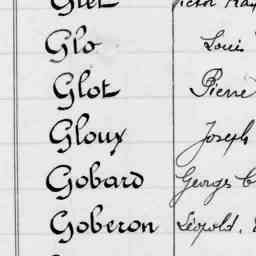 Glo Louis
Glot Pierre
Gloux Joseph
Gobard Georges
Goberon Léopold,